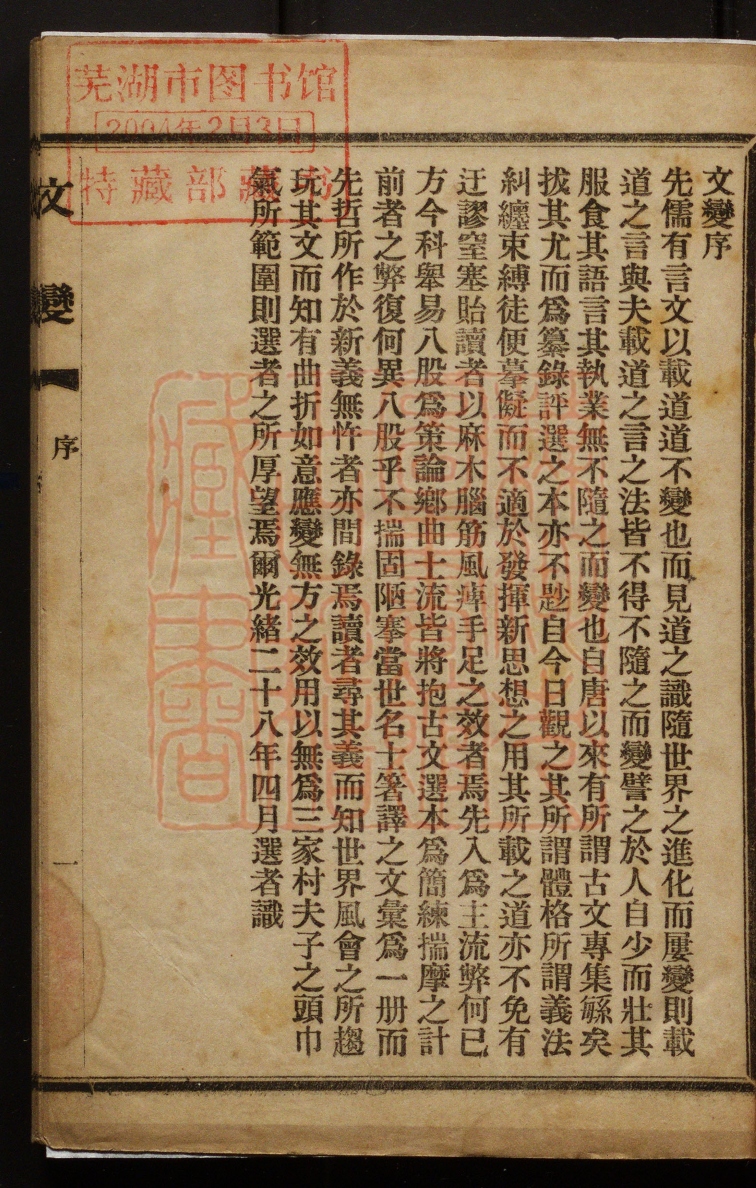 文變序
先儒有言文以載道道不變也而見道之識隨世界之進化而屢變則載
道之言與夫載道之言之法皆不得不隨之而變譬之於人自少而壯其
服食其語言其執業無不隨之而變也自唐以來有所謂古文專集緐矣
拔其尤而爲纂錄評選之本亦不尟自今日觀之其所謂體格所謂義法
糾纏束縛徒便摹儗而不適於發揮新思想之用其所載之道亦不免有
迂謬窒塞貽讀者以麻木腦筋風痺手足之效者焉先入爲主流弊何已
方今科舉易八股爲策論鄉曲士流皆將抱古文選本爲簡練揣摩之計
前者之弊復何異八股乎不揣固陋搴當世名士箸譯之文彙爲一册而
先哲所作於新義無忤者亦間錄焉讀者尋其義而知世界風會之所趨
玩其文而知有曲折如意應變無方之效用以無爲三家村夫子之頭巾
氣所範圍則選者之所厚望焉爾光緒二十八年四月選者識
文變
序
一
芜湖市图书馆
2004年2月3日
特藏部藏书